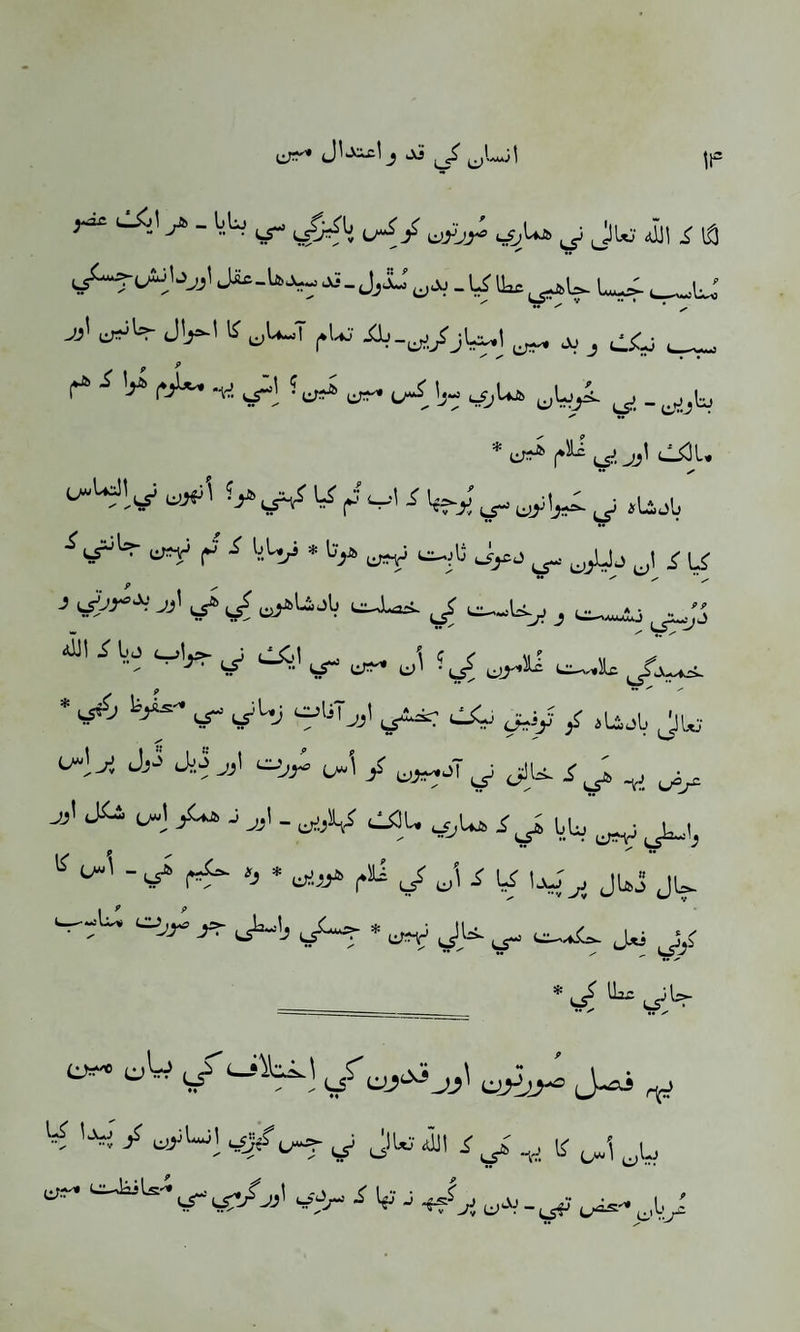 ۱۴ انسان کي قد و اعتدال مین
لگا کہ الله تعالیٰ ني هماري صورتون کو کس پاکیزگي سي بنایا - هر ایک عضو
تناسب جیسا چاهئي عطا کیا - بدن سڈول - قد سیدها - عقل اور دانش جسکي
سبب نیک و بد مین امتیاز کرین - بلکہ تمام آسمان کا احوال جانین اور
بتاوین - یي خوبیان هماري سوا کس مین هین ؟ اس سي یہ معلوم هوا کہ هم
مالک اور یي غلام هین *
بادشاه ني حیوانون سي پوچها کہ اب تم کیا کهتي هو ؟ اُنهون ني التماس
کیا کہ ان دلیلون سي دعویٰ ثابت نهین هوتا * فرمایا کہ تم نهین جانتي کہ
درستي نشست و برخاست کي خصلت بادشاهون کي هي اور بدصورتي و
خمیدگي علامت غلامون کي ؟ ان مین سي ایک ني جواب دیا کہ الله
تعالیٰ بادشاه کو توفیق نیک بخشي اور آفات زماني سي محفوظ رکهي *
عرض یہ هي کہ خالق ني آدمیون کو اس صورت اور ڈیل ڈول پر اس
واسطي نهین بنایا هي کہ هماري مالک کهلاوین - اور نہ همکو اس شکل اور
چال ڈهال پر پیدا کیا کہ ان کي غلام هووین * وه حکیم هي - اس کا
کوئي فعل حکمت سي خالي نهین * جسکي واسطي جو صورت مناسب
جاني عطا کي *
یہ فصل صورتون اور قدون کي اختلاف کي بیان مین
بیان اس کا یہ هي کہ الله تعالیٰ ني جس گهڑي انسانون کو پیدا کیا
عریان محض تهي - بدن پر کچه نہ تها کہ سردي اور گرمي سي محافظت مین